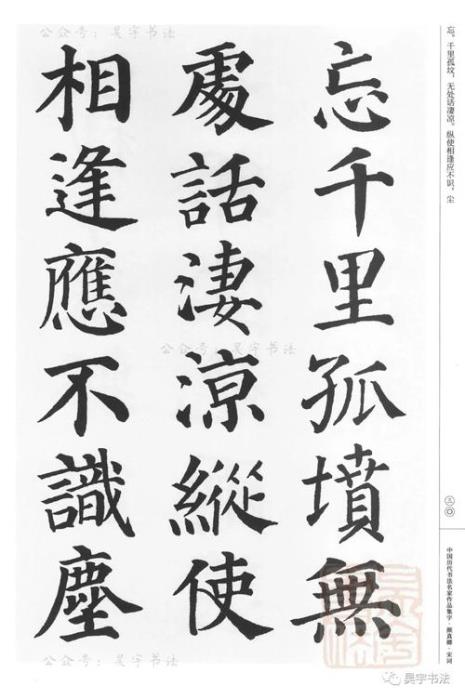 公众号：昊宇书法
忘千里孤墳無
處話淒涼縱使
相逢應不識塵
忘。千里孤坟，无处话凄凉。纵使相逢应不识，尘
公众号：昊宇书法
三〇
中国历代书法名家作品集字·颜真卿·宋词
公众号：昊宇书法
昊宇书法